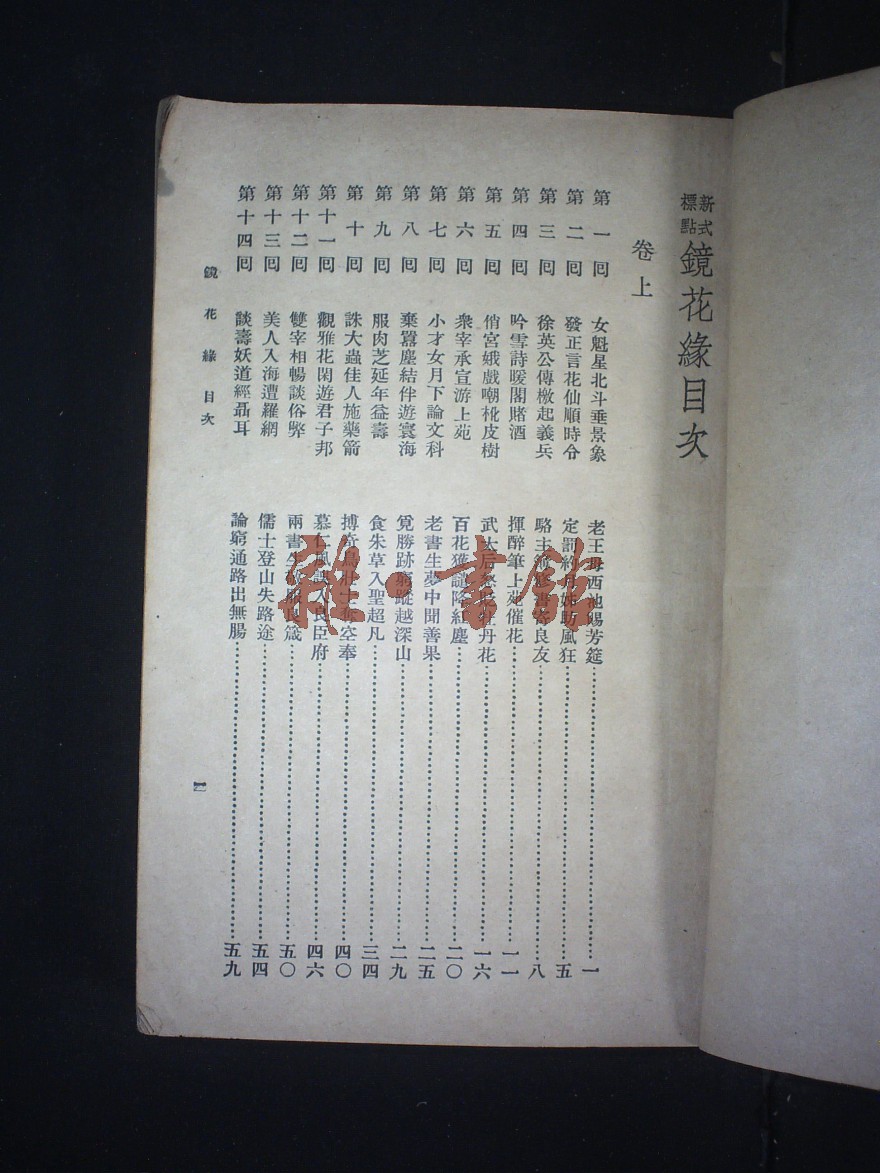 新式標點 鏡花緣目次
卷上
第一囘 女魁星北斗垂景象 老王母西池賜芳筵……一
第二囘 發正言花仙順時令 定罰約月姊助風狂……五
第三囘 徐英公傳檄起義兵 駱主簿修書寄良友……八
第四囘 吟雪詩暖閣賭酒 揮醉筆上苑催花……一一
第五囘 俏宮娥戲嘲枇皮樹 武太后怒貶牡丹花……一六
第六囘 衆宰承宣游上苑 百花獲譴降紅塵……二〇
第七囘 小才女月下論文科 老書生夢中聞善果……二五
第八囘 棄囂塵結伴遊寰海 覓勝跡窮蹤越深山……二九
第九囘 服肉芝延年益壽 食朱草入聖超凡……三四
第十囘 誅大蟲佳人施藥箭 搏奇鳥壯士奮空奉……四〇
第十一囘 觀雅花閑遊君子邦 慕仁風誤入良臣府……四六
第十二囘 雙宰相暢談俗弊 兩書生敬服良箴……五〇
第十三囘 美人入海遭羅網 儒士登山失路途……五四
第十四囘 談壽妖道經聶耳 論窮通路出無腸……五九
鏡花緣 目次
雜·書館